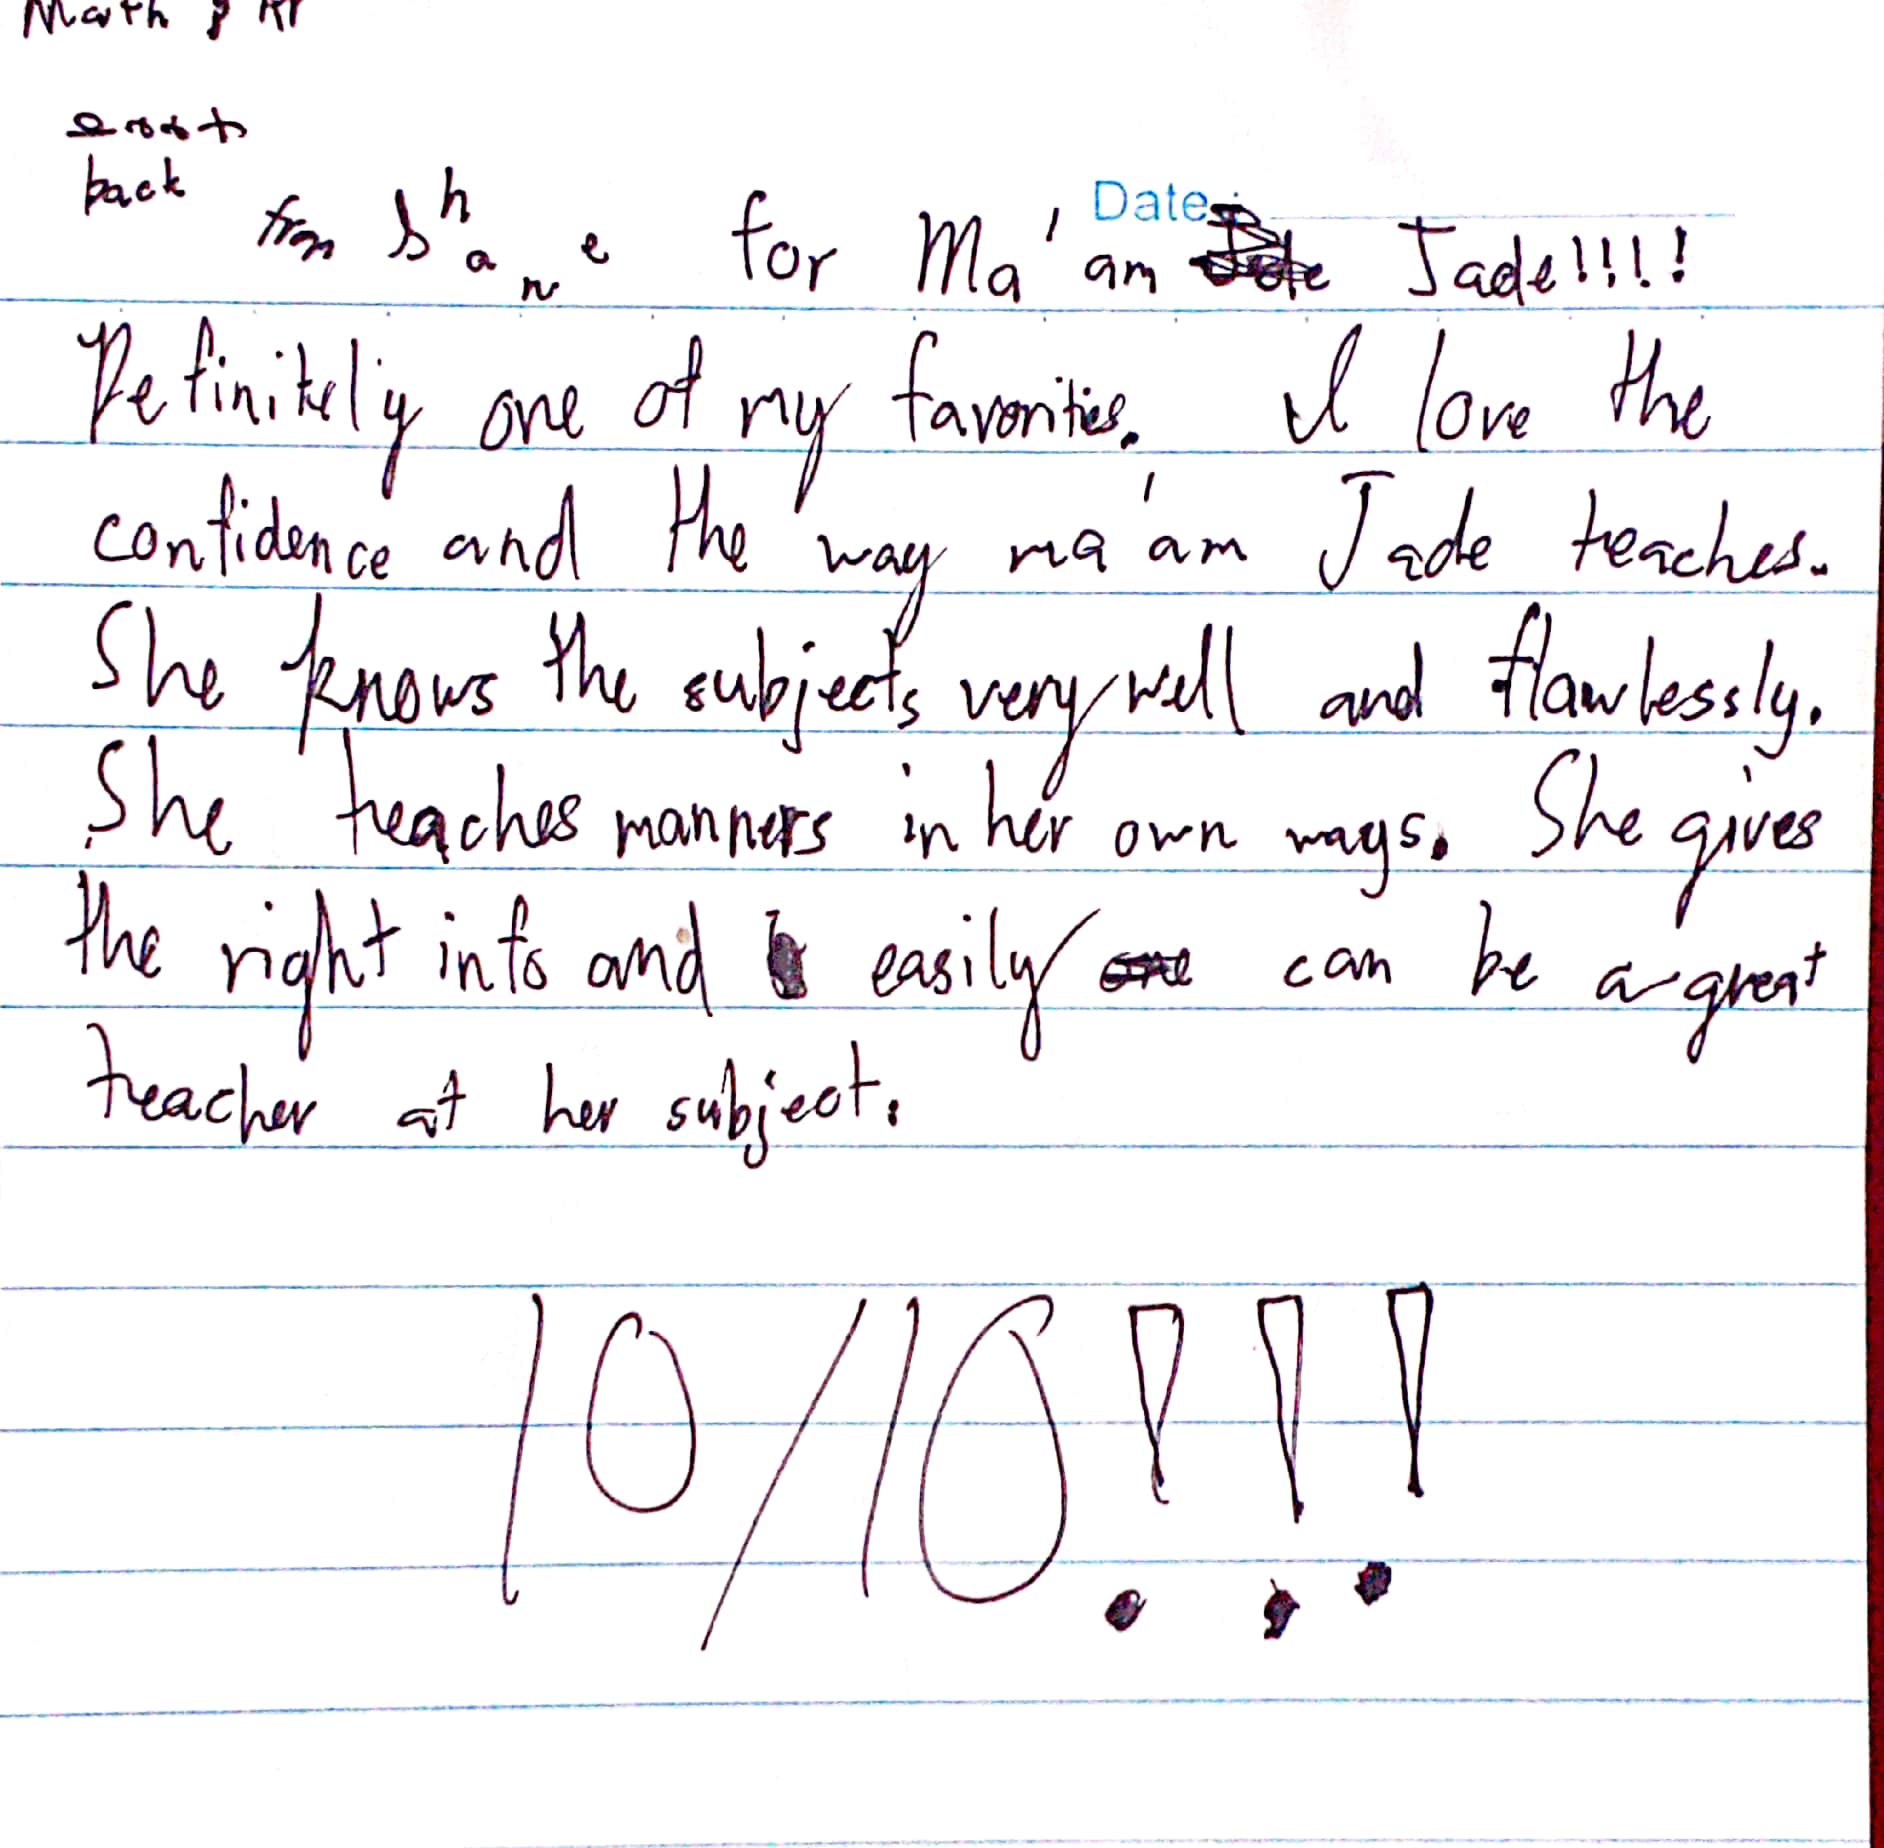 Math &
back
from Shane for Ma'am Jade!!!!
Date:
Definitely one of my favorities. I love the
confidence and the way ma'am Jade teaches.
She knows the subjects very well and flawlessly.
She teaches manners in her own ways. She gives
the right info and easily can be a great
teacher at her subject.
10/10!!!